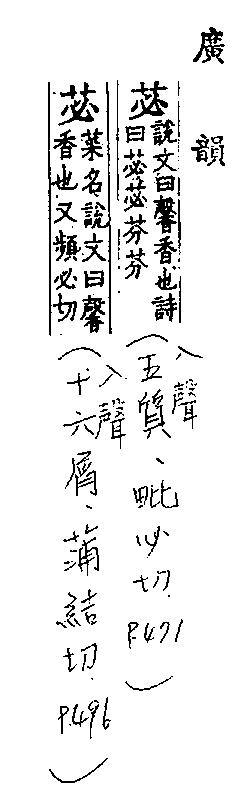 廣韻
苾說文曰馨香也詩曰苾苾芬芬(入聲五質、毗必切.P.471)
苾菜名說文曰馨香也又頻必切(入聲十六屑、蒲結切.P.496)